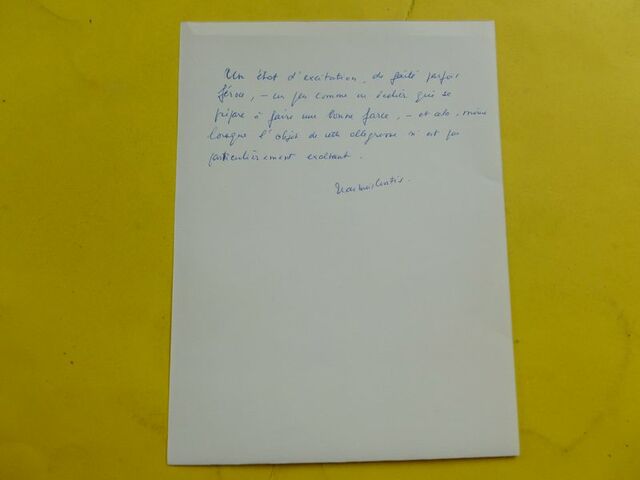 Un état d'excitation, de gaîté parfois
féroce, – un peu comme un écolier qui se
prépare à faire une bonne farce, – et cela, même
lorsque l'objet de cette allégresse n'est pas
particulièrement exaltant.
Jean-Louis Curtis.